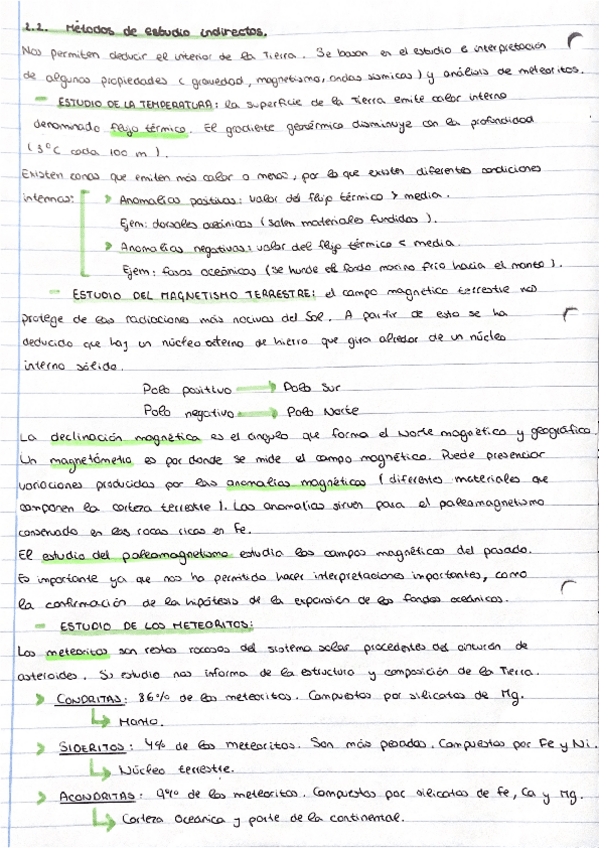 2.2. Métodos de estudio indirectos.
Nos permiten deducir el interior de la Tierra. Se basan en el estudio e interpretación
de algunas propiedades (gravedad, magnetismo, ondas sísmicas) y análisis de meteoritos.
- ESTUDIO DE LA TEMPERATURA: la superficie de la Tierra emite calor interno
denominado flujo térmico. El gradiente geotérmico disminuye con la profundidad
(3°C cada 100 m).
Existen zonas que emiten más calor o menos, por lo que existen diferentes condiciones
internas:
> Anomalías positivas: valor del flujo térmico > media.
Ejem: dorsales oceánicas (salen materiales fundidos).
> Anomalías negativas: valor del flujo térmico < media.
Ejem: fosas oceánicas (se hunde el fondo marino frío hacia el manto).
- ESTUDIO DEL MAGNETISMO TERRESTRE: el campo magnético terrestre nos
protege de las radiaciones más nocivas del Sol. A partir de esto se ha
deducido que hay un núcleo externo de hierro que gira alredor de un núcleo
interno sólido.
Polo positivo → Polo Sur
Polo negativo → Polo Norte
La declinación magnética es el ángulo que forma el Norte magnético y geográfico.
Un magnetómetro es por donde se mide el campo magnético. Puede presenciar
variaciones producidas por las anomalías magnéticas (diferentes materiales que
componen la corteza terrestre). Las anomalías sirven para el paleomagnetismo
conservado en las rocas ricas en Fe.
El estudio del paleomagnetismo estudia los campos magnéticos del pasado.
Es importante ya que nos ha permitido hacer interpretaciones importantes, como
la confirmación de la hipótesis de la expansión de los fondos oceánicos.
- ESTUDIO DE LOS METEORITOS:
Los meteoritos son restos rocosos del sistema solar procedentes del cinturón de
asteroides. Su estudio nos informa de la estructura y composición de la Tierra.
> CONDRITAS: 86% de los meteoritos. Compuestos por silicatos de Mg.
↳ Manto.
> SIDERITOS: 4% de los meteoritos. Son más pesados. Compuestos por Fe y Ni.
↳ Núcleo terrestre.
> ACONDRITAS: 9% de los meteoritos. Compuestos por silicatos de Fe, Ca y Mg.
↳ Corteza Oceánica y parte de la continental.